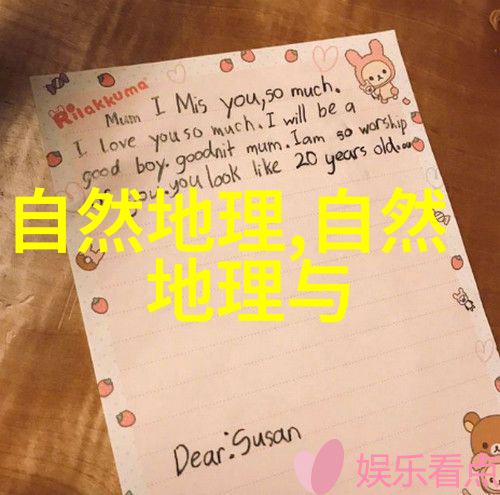 Rilakkuma
Mum I Mis you,so much.
I love you so much. I will be a
good boy. goodnit mum. I am so worship
you. you look like 20 years old.
自然地理,自然
地理与
Dear:Susan
娱乐看点